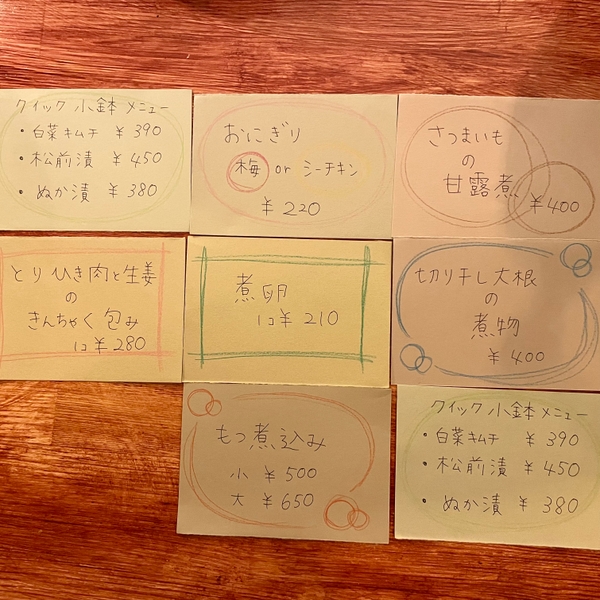 クイック 小鉢 メニュー
・白菜キムチ ¥390
・松前漬 ¥450
・ぬか漬 ¥380
おにぎり
梅 or シーチキン
¥220
さつまいも
の
甘露煮
¥400
とりひき肉と生姜
の
きんちゃく包み
1コ¥280
煮卵
1コ¥210
切り干し大根
の
煮物
¥400
もつ煮込み
小 ¥500
大 ¥650
クイック 小鉢 メニュー
・白菜キムチ ¥390
・松前漬 ¥450
・ぬか漬 ¥380